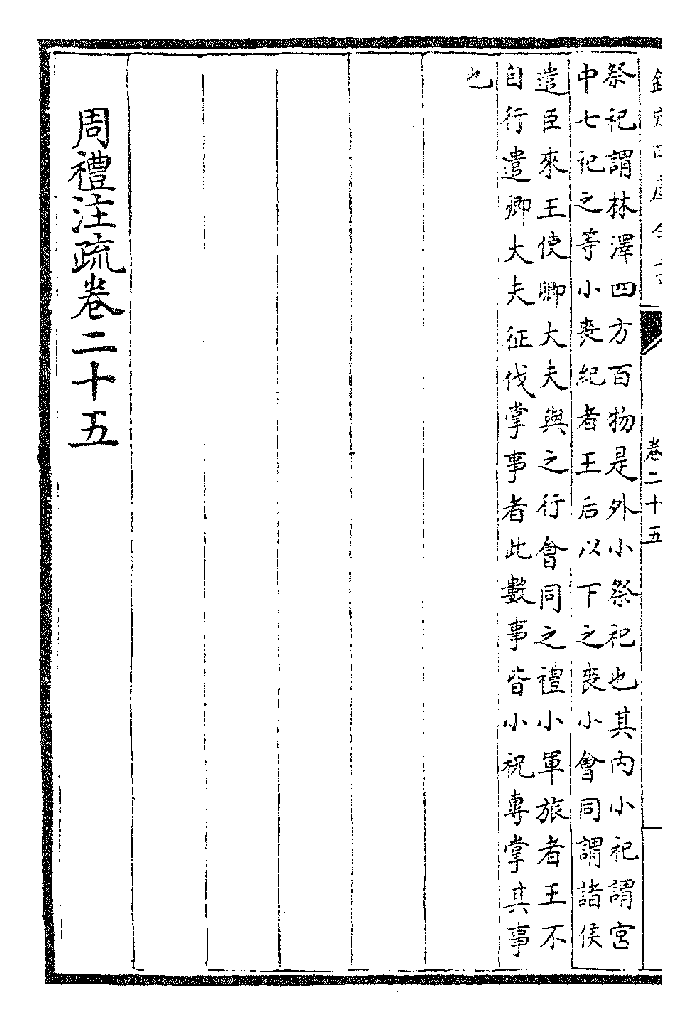 欽定四庫全書
卷二十五
祭祀謂林澤四方百物是外小祭祀也其内小祀謂宮
中七祀之等小喪紀者王后以下之喪小會同謂諸侯
遣臣來王使卿大夫與之行會同之禮小軍旅者王不
自行遣卿大夫征伐掌事者此數事皆小祝專掌其事
也
周禮注疏卷二十五